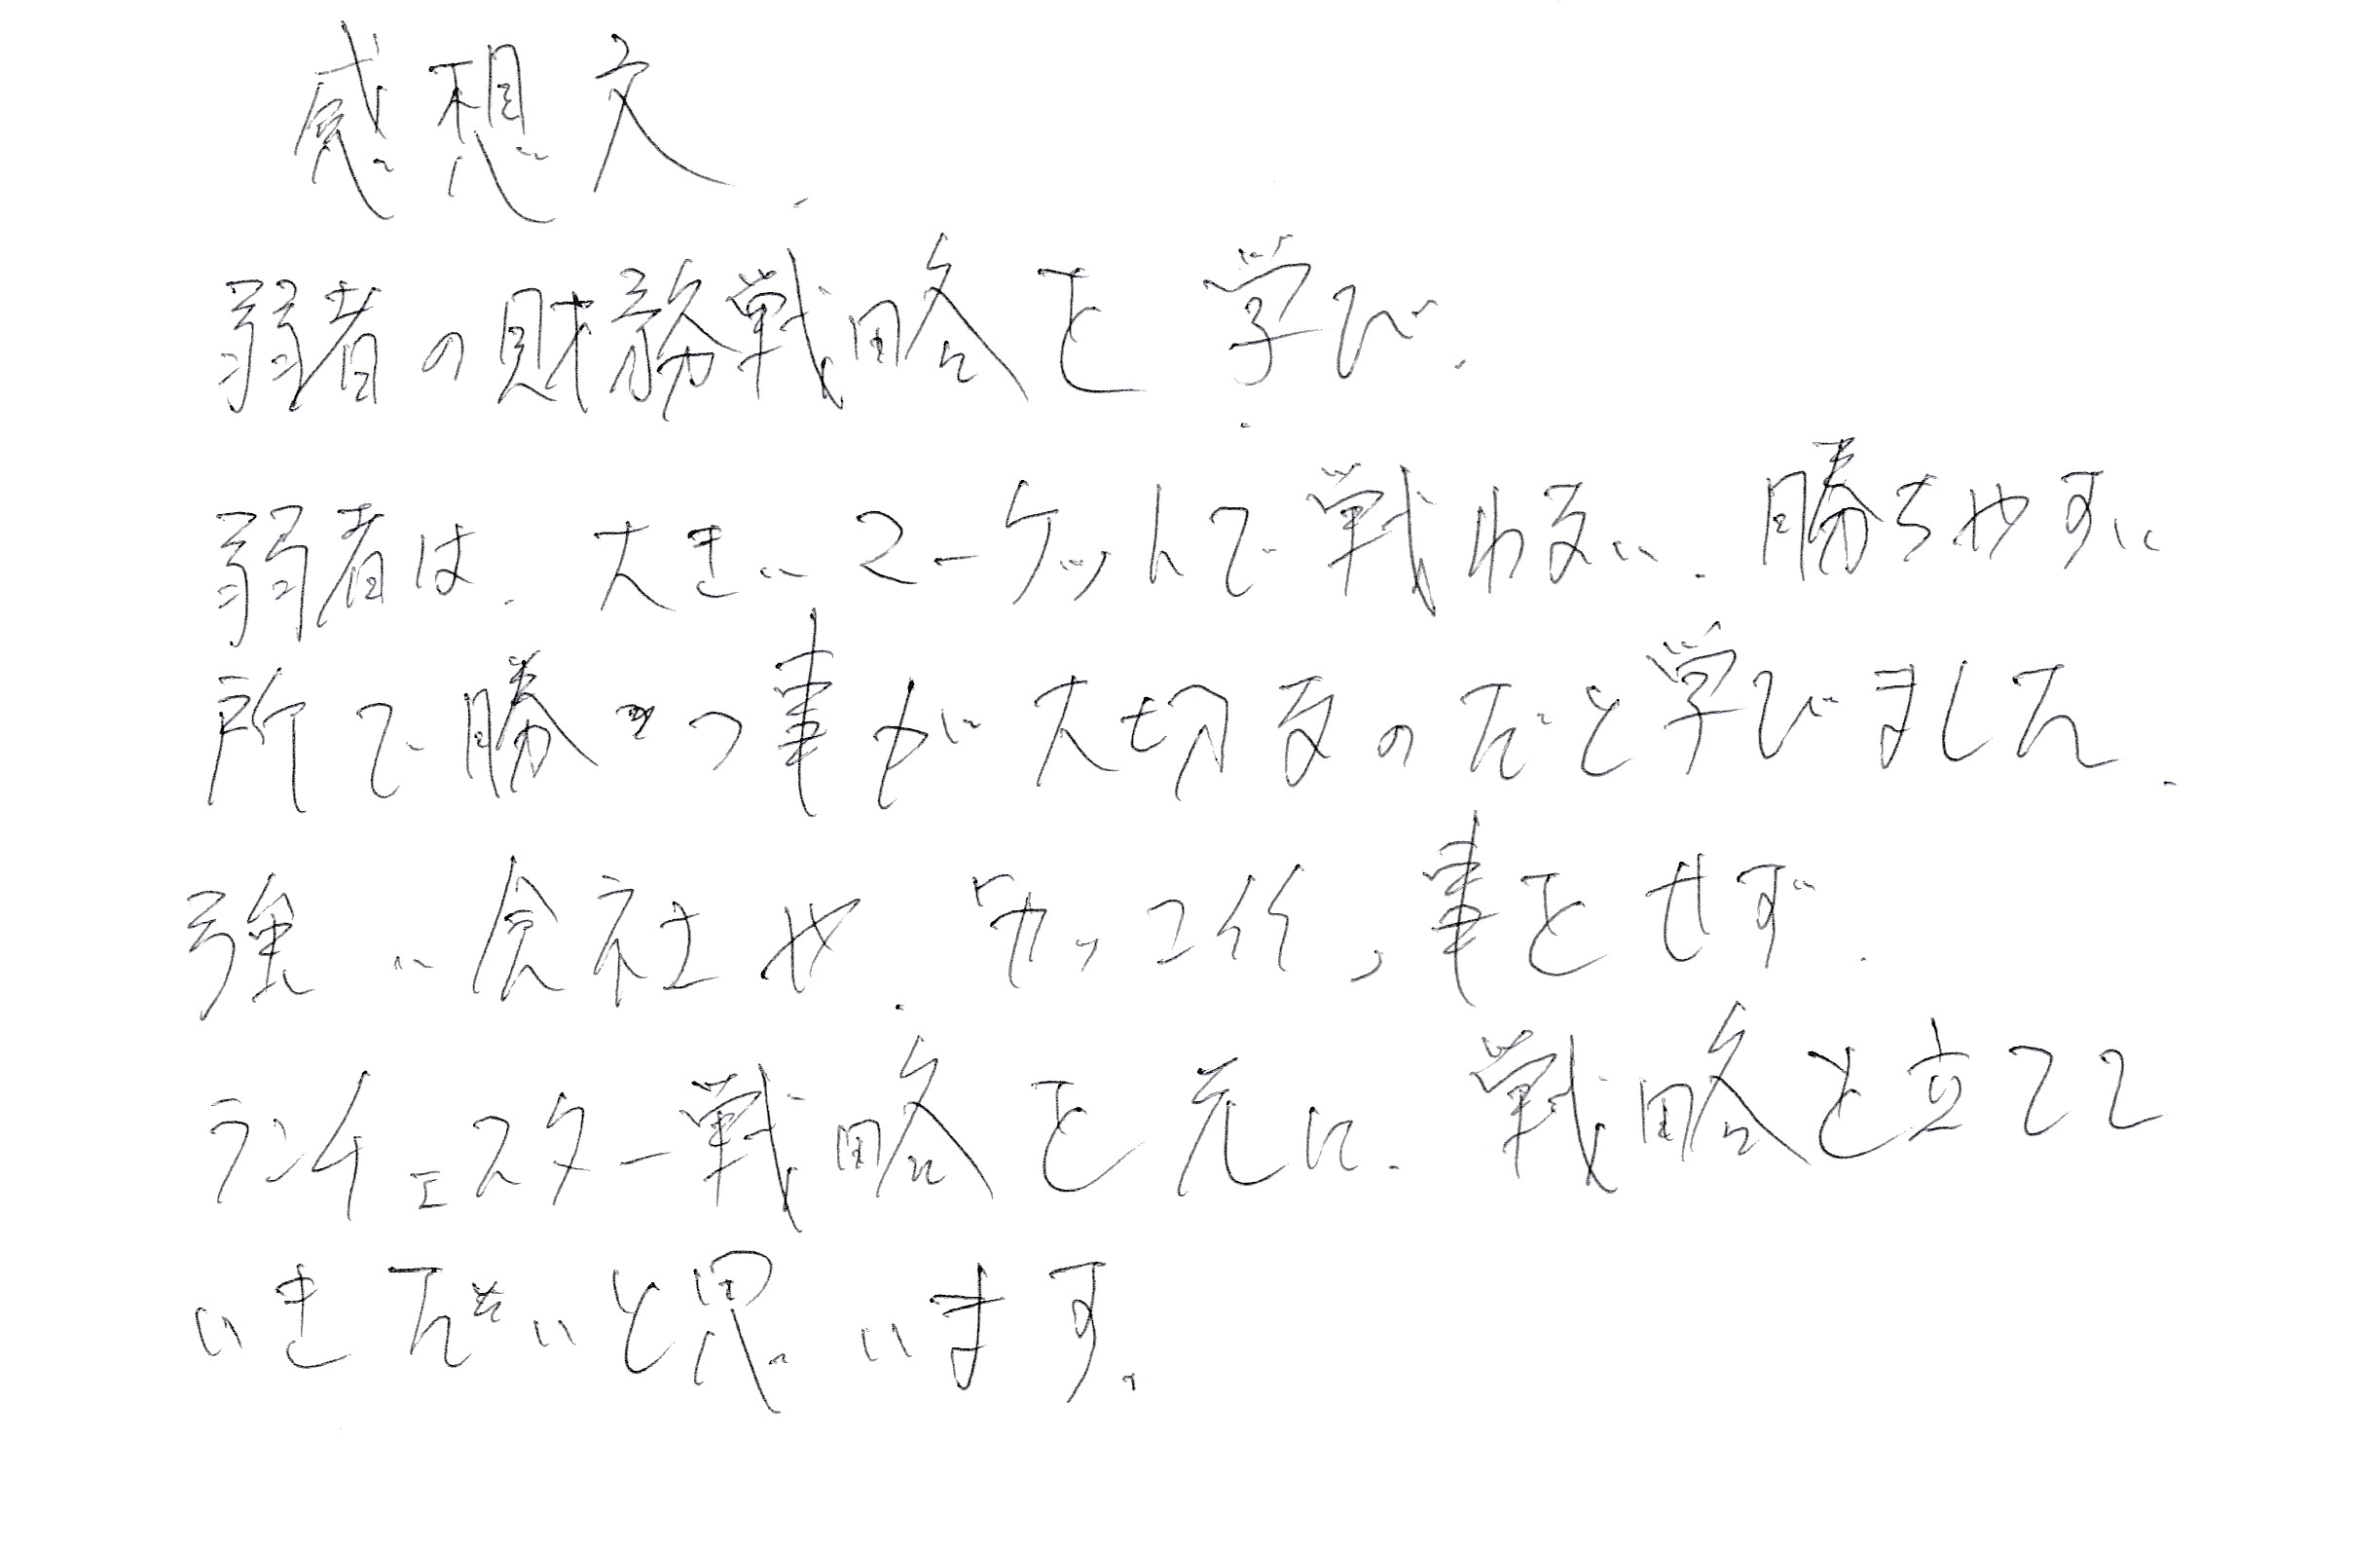 感想文
弱者の財務戦略を学び、
弱者は、大きいマーケットで戦わない、勝ちやすい
所で勝つ事が大切なのだと学びました。
強い会社や、カッコイイ事をせず、
ランチェスター戦略を元に、戦略を立てて
いきたいと思います。